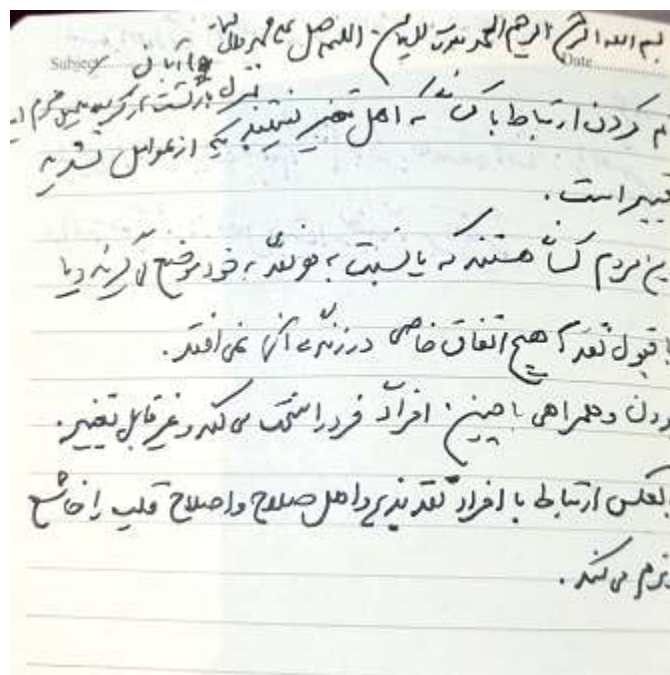 بسم الله الرحمن الرحیم الحمد لله رب العالمین. اللهم صل علی محمد وآل
Subject Date
کم کردن ارتباط با کسانی که اهل تغییر نیستند یکی از عوامل
تغییر است.
این مردم کسانی هستند که یا نسبت به هر نقدی به خود موضع می گیرند و یا
با قبول نقد هیچ اتفاق خاصی در زندگی آنها نمی افتد.
بودن و همراهی با چنین افرادی فرد را سخت می کند و غیر قابل تغییر.
بالعکس ارتباط با افراد نقد پذیر و اهل صلاح و اصلاح قلب را خاشع
و نرم می کند.